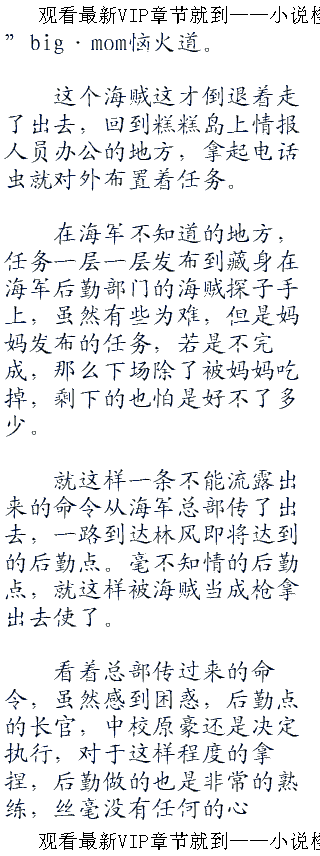 观看最新VIP章节就到——小说检
”big·mom恼火道。
这个海贼这才倒退着走
了出去，回到糕糕岛上情报
人员办公的地方，拿起电话
虫就对外布置着任务。
在海军不知道的地方，
任务一层一层发布到藏身在
海军后勤部门的海贼探子手
上，虽然有些为难，但是妈
妈发布的任务，若是不完
成，那么下场除了被妈妈吃
掉，剩下的也怕是好不了多
少。
就这样一条不能流露出
来的命令从海军总部传了出
去，一路到达林风即将达到
的后勤点。毫不知情的后勤
点，就这样被海贼当成枪拿
出去使了。
看着总部传过来的命
令，虽然感到困惑，后勤点
的长官，中校原豪还是决定
执行，对于这样程度的拿
捏，后勤做的也是非常的熟
练，丝毫没有任何的心
观看最新VIP章节就到——小说检